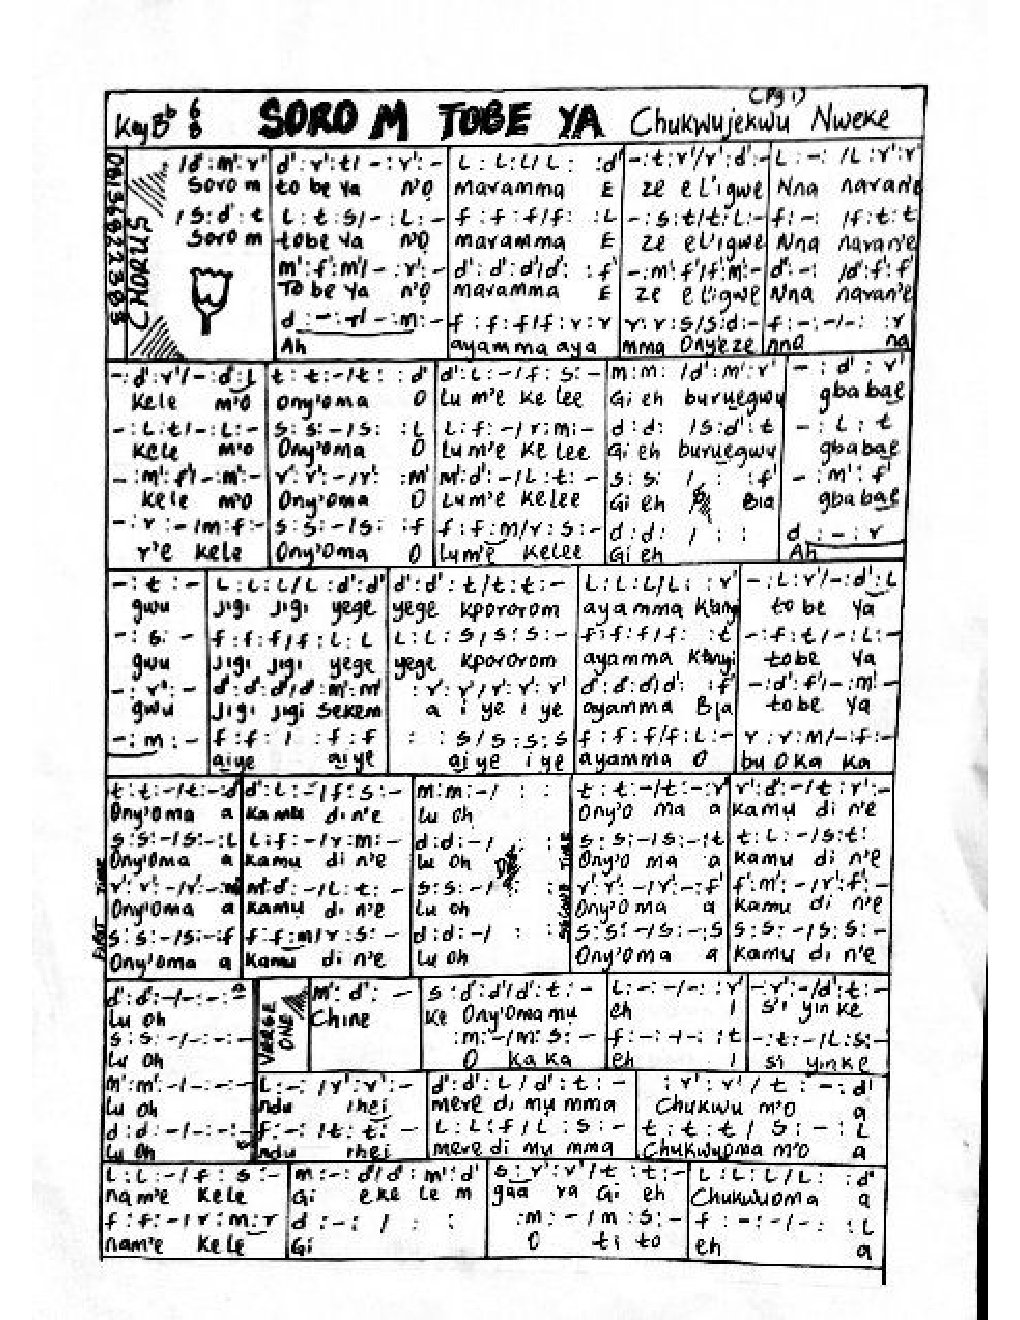 (Pg 1)
Key B♭ 6/8 SORO M TOBE YA Chukwujekwu Nweke
CHORUS
/d':m':r' d':r':t/-:r':- L:L:L/L: :d' -:t:r'/r':d':- L:-: /L:r':r'
Soro m to be Ya n'o maramma E ze e L'igwe Nna naran'e
/s:d':t L:t:s/-:L:- f:f:f/f: :L -:s:t/t:L:- f:-: /f:t:t
Soro m tobe Ya n'o maramma E ze eL'igwe Nna naran'e
m':f':m'/-:r':- d':d':d'/d': :f' -:m':f'/f':m':- d':-: /d':f':f'
To be Ya n'o maramma E ze e L'igwe Nna naran'e
d:-:r/-:m:- f:f:f/f:r:r r:r:s/s:d:- f:-:-/-: :r
Ah ayamma aya mma Ony'eze nna na
-:d':r'/-:d':L t:t:-/t: :d' d':L:-/f:s:- m:m: /d':m':r' -:d':r'
Kele m'o Ony'oma O lu m'e Ke lee Gi eh buruegwu gbabae
-:L:t/-:L:- s:s:-/s: :L L:f:-/r:m:- d:d: /s:d':t -:L:t
Kele m'o Ony'oma O lum'e Ke lee Gi eh buruegwu gbabae
-:m':f'/-:m':- r':r':-/r': :m' m':d':-/L:t:- s:s: / : :f' -:m':f'
Kele m'o Ony'oma O Lum'e Kelee Gi eh Bia gbabae
-:r:-/m:f:- s:s:-/s: :f f:f:m/r:s:- d:d: / : : d:-:r
r'e Kele Ony'Oma O lum'e Kelee Gi eh Ah
-:t:- L:L:L/L:d':d' d':d':t/t:t:- L:L:L/L: :r' -:L:r'/-:d':L
gwu Jigi Jigi yege yege Kpororom ayamma to be Ya
-:s:- f:f:f/f:L:L L:L:s/s:s:- f:f:f/f: :t -:f:t/-:L:-
gwu Jigi Jigi yege yege Kpororom ayamma tobe Ya
-:r':- d':d':d'/d':m':m' :r':r'/r':r':r' d':d':d'/d': :f' -:d':f'/-:m':-
gwu Jigi Jigi Sekem a i ye i ye ayamma Bia tobe Ya
-:m:- f:f: / :f:f : :s/s:s:s f:f:f/f:L:- r:r:m/-:f:-
aiye ai ye ai ye i ye ayamma O bu OKa Ka
FIRST TIME
t:t:-/t:-:d' d':L:-/f:s:- m:m:-/ : : t:t:-/t:-:r' r':d':-/t:r':-
Ony'Oma a Kamu di n'e lu oh Ony'o ma a Kamu di n'e
s:s:-/s:-:L L:f:-/r:m:- d:d:-/ s:s:-/s:-:t t:L:-/s:t:
Ony'Oma a Kamu di n'e lu oh Ony'o ma a Kamu di n'e
SECOND TIME
r':r':-/r':-:m' m':d':-/L:t:- s:s:-/ r':r':-/r':-:f' f':m':-/r':f':-
Ony'Oma a Kamu di n'e lu oh Ony'o ma a Kamu di n'e
s:s:-/s:-:f f:f:m/r:s:- d:d:-/ : : s:s:-/s:-:s s:s:-/s:s:-
Ony'Oma a Kamu di n'e lu oh Ony'Oma a Kamu di n'e
VERSE ONE
d':d':-/-:-:- m':d':- s:d':d'/d':t:- L:-:-/-: :r' -:r':-/d':t:-
lu oh Chine Ke Ony'Oma mu eh I s'i yin ke
s:s:-/-:-:- :m:-/m:s:- f:-:-/-: :t -:t:-/L:s:-
lu oh O Ka Ka eh I si yinke
m':m':-/-:-:- L:-: /r':r':- d':d':L/d':t:- :r':r'/t:-:d'
lu oh ndu rhei mere di mu mma Chukwu m'o a
d:d:-/-:-:- f:-: /t:t:- L:L:f/L:s:- t:t:t/s:-:L
lu oh ndu rhei mere di mu mma Chukwuoma m'o a
L:L:-/f:s:- m:-:d'/d':m':d' s:r':r'/t:t:- L:L:L/L: :d'
nam'e Kele Gi eke le m gaa ra Gi eh Chukwuoma a
f:f:-/r:m:r d:-: / : : :m:-/m:s:- f:-:-/-: :L
nam'e Kele Gi O ti to eh a